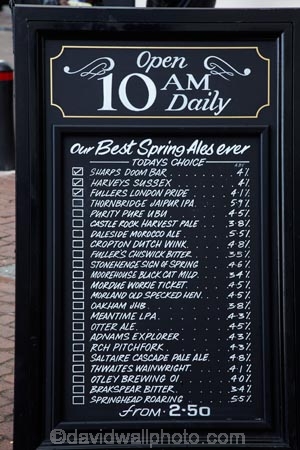 Open
10 AM
Daily
Our Best Spring Ales ever
TODAYS CHOICE
SHARPS DOOM BAR 4%
HARVEYS SUSSEX 4%
FULLERS LONDON PRIDE 4.1%
THORNBRIDGE JAIPUR IPA 5.9%
PURITY PURE UBU 4.5%
CASTLE ROCK HARVEST PALE 3.8%
DALESIDE MOROCCO ALE 5.5%
CROPTON DUTCH WINK 4.8%
FULLER'S CHISWICK BITTER 3.5%
STONEHENGE SIGN OF SPRING 4.6%
MOOREHOUSE BLACK CAT MILD 3.4%
MORDUE WORKIE TICKET 4.5%
MORLAND OLD SPECKLED HEN 4.5%
OAKHAM JHB 3.8%
MEANTIME LPA 4.3%
OTTER ALE 4.5%
ADNAMS EXPLORER 4.3%
RCH PITCHFORK 4.3%
SALTAIRE CASCADE PALE ALE 4.8%
THWAITES WAINWRIGHT 4.1%
OTLEY BREWING O1 4.0%
BRAKSPEAR BITTER 3.4%
SPRINGHEAD ROARING 5.5%
FROM 2.50
©davidwallphoto.com